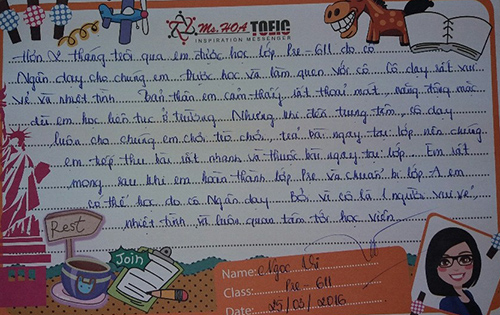 Ms. HOA TOEIC
INSPIRATION MESSENGER
Hơn 2 tháng trôi qua em được học lớp Pre - 611 do cô
Ngân dạy cho chúng em. Được học và làm quen với cô. Cô dạy rất vui
vẻ và nhiệt tình. Bản thân em cảm thấy rất thoải mái, năng động mặc
dù em học liên tục ở trường. Nhưng khi đến trung tâm, cô dạy
luôn cho chúng em chơi trò chơi, trả bài ngay tại lớp nên chúng
em tiếp thu bài rất nhanh và thuộc bài ngay tại lớp. Em rất
mong sau khi em hoàn thành lớp Pre và chuẩn bị lớp A em
có thể học do cô Ngân dạy. Bởi vì cô là 1 người vui vẻ,
nhiệt tình và luôn quan tâm tới học viên.
Rest
Join
Name: Ngọc Nhi
Class: Pre - 611
Date: 25/03/2016